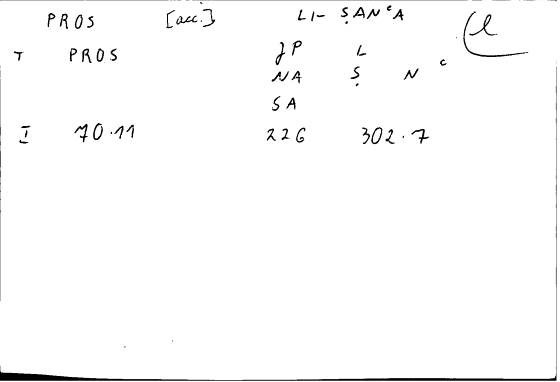 PROS [acc.] LI- ṢANᶜA
T PROS JP L
NA Ṣ N ᶜ
SA
I 70.11 226 302.7